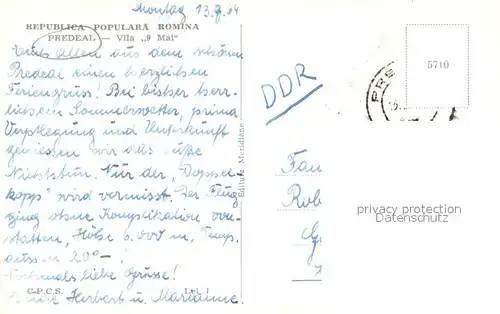 Montag 13.7.64
REPUBLICA POPULARĂ ROMÎNĂ
PREDEAL — Vila „9 Mai"
Euch Allen aus dem schönen
Predeal einen herzlichen
Feriengruss! Bei bisher herr-
lichem Sommerwetter, prima
Verpflegung und Unterkunft
geniessen wir das süße
Nichtstun. Nur der „Doppel-
kopp" wird vermisst. Der Flug
ging ohne Komplikation von-
statten, Höhe 6.000 m, Temp.
aussen 20° - !
Nochmals liebe Grüsse!
Herbert u. Marianne.
C.P.C.S. Lei 1
Editura Meridiane
DDR
PRE
5710
Fam
Rob
G
privacy protection
Datenschutz